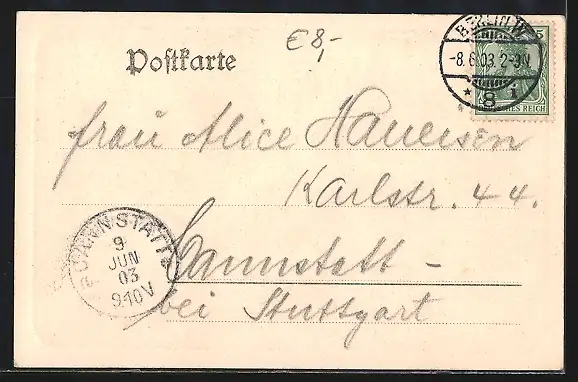 €8,-
Postkarte
BERLIN W.
-8.6.03. 2-3N.
* 8 i
5
DEUTSCHES REICH
Frau Alice
Karlstr. 44.
Cannstatt -
bei Stuttgart
CANNSTATT
9
JUN
03
9-10V